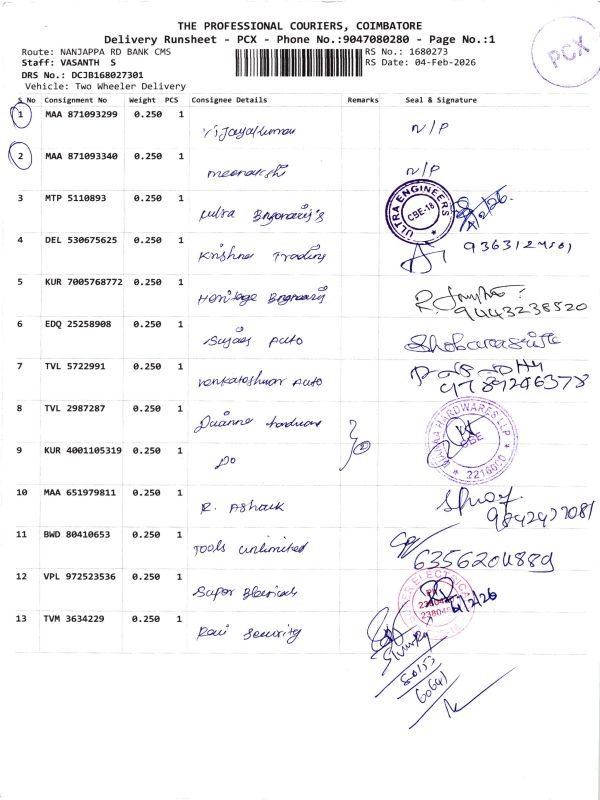 THE PROFESSIONAL COURIERS, COIMBATORE
Delivery Runsheet - PCX - Phone No.:9047080280 - Page No.:1
Route: NANJAPPA RD BANK CMS
RS No.: 1680273
Staff: VASANTH S
RS Date: 04-Feb-2026
DRS No.: DCJB168027301
Vehicle: Two Wheeler Delivery
PCX
S No Consignment No Weight PCS Consignee Details Remarks Seal & Signature
1 MAA 871093299 0.250 1
Vijayakumar N/P
2 MAA 871093340 0.250 1
meenakshi N/P
3 MTP 5110893 0.250 1
ULTRA ENGINEERS CBE-18
4 DEL 530675625 0.250 1
Krishna Trading
5 KUR 7005768772 0.250 1
Heritage 9443238520
6 EDQ 25258908 0.250 1
Auto
7 TVL 5722991 0.250 1
Venkateshwar Auto 9789246378
8 TVL 2987287 0.250 1
HARDWARES LLP
CBE
9 KUR 4001105319 0.250 1
Do 2
10 MAA 651979811 0.250 1
R. Ashok
11 BWD 80410653 0.250 1
Tools unlimited 6356204889
12 VPL 972523536 0.250 1
Super
13 TVM 3634229 0.250 1
Ravi Security